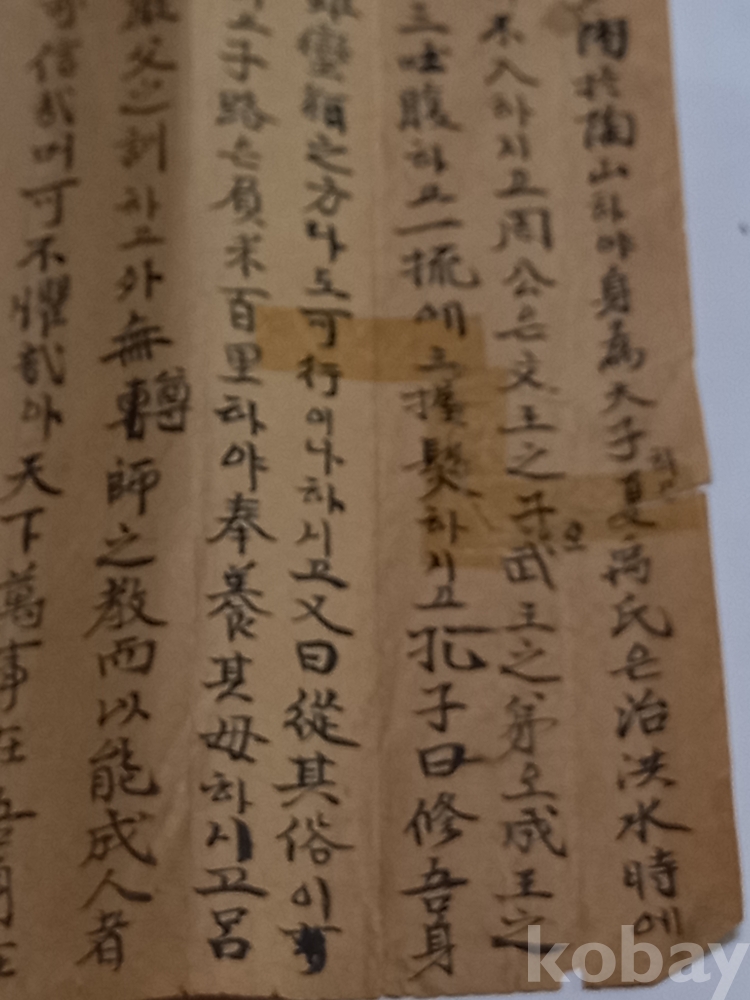 陶於陶山하야身爲天子하고夏禹氏은治洪水時에
不入하시고周公은文王之子오武王之弟오成王之
三吐腹하고一梳에三握髮하시고孔子曰修吾身
之方나도可行이나하시고又曰從其俗이
子路은負米百里하야奉養其母하시고呂
父之訓하고外無師之敎而以能成人者
信哉며可不懼哉아天下萬事在吾
kobay